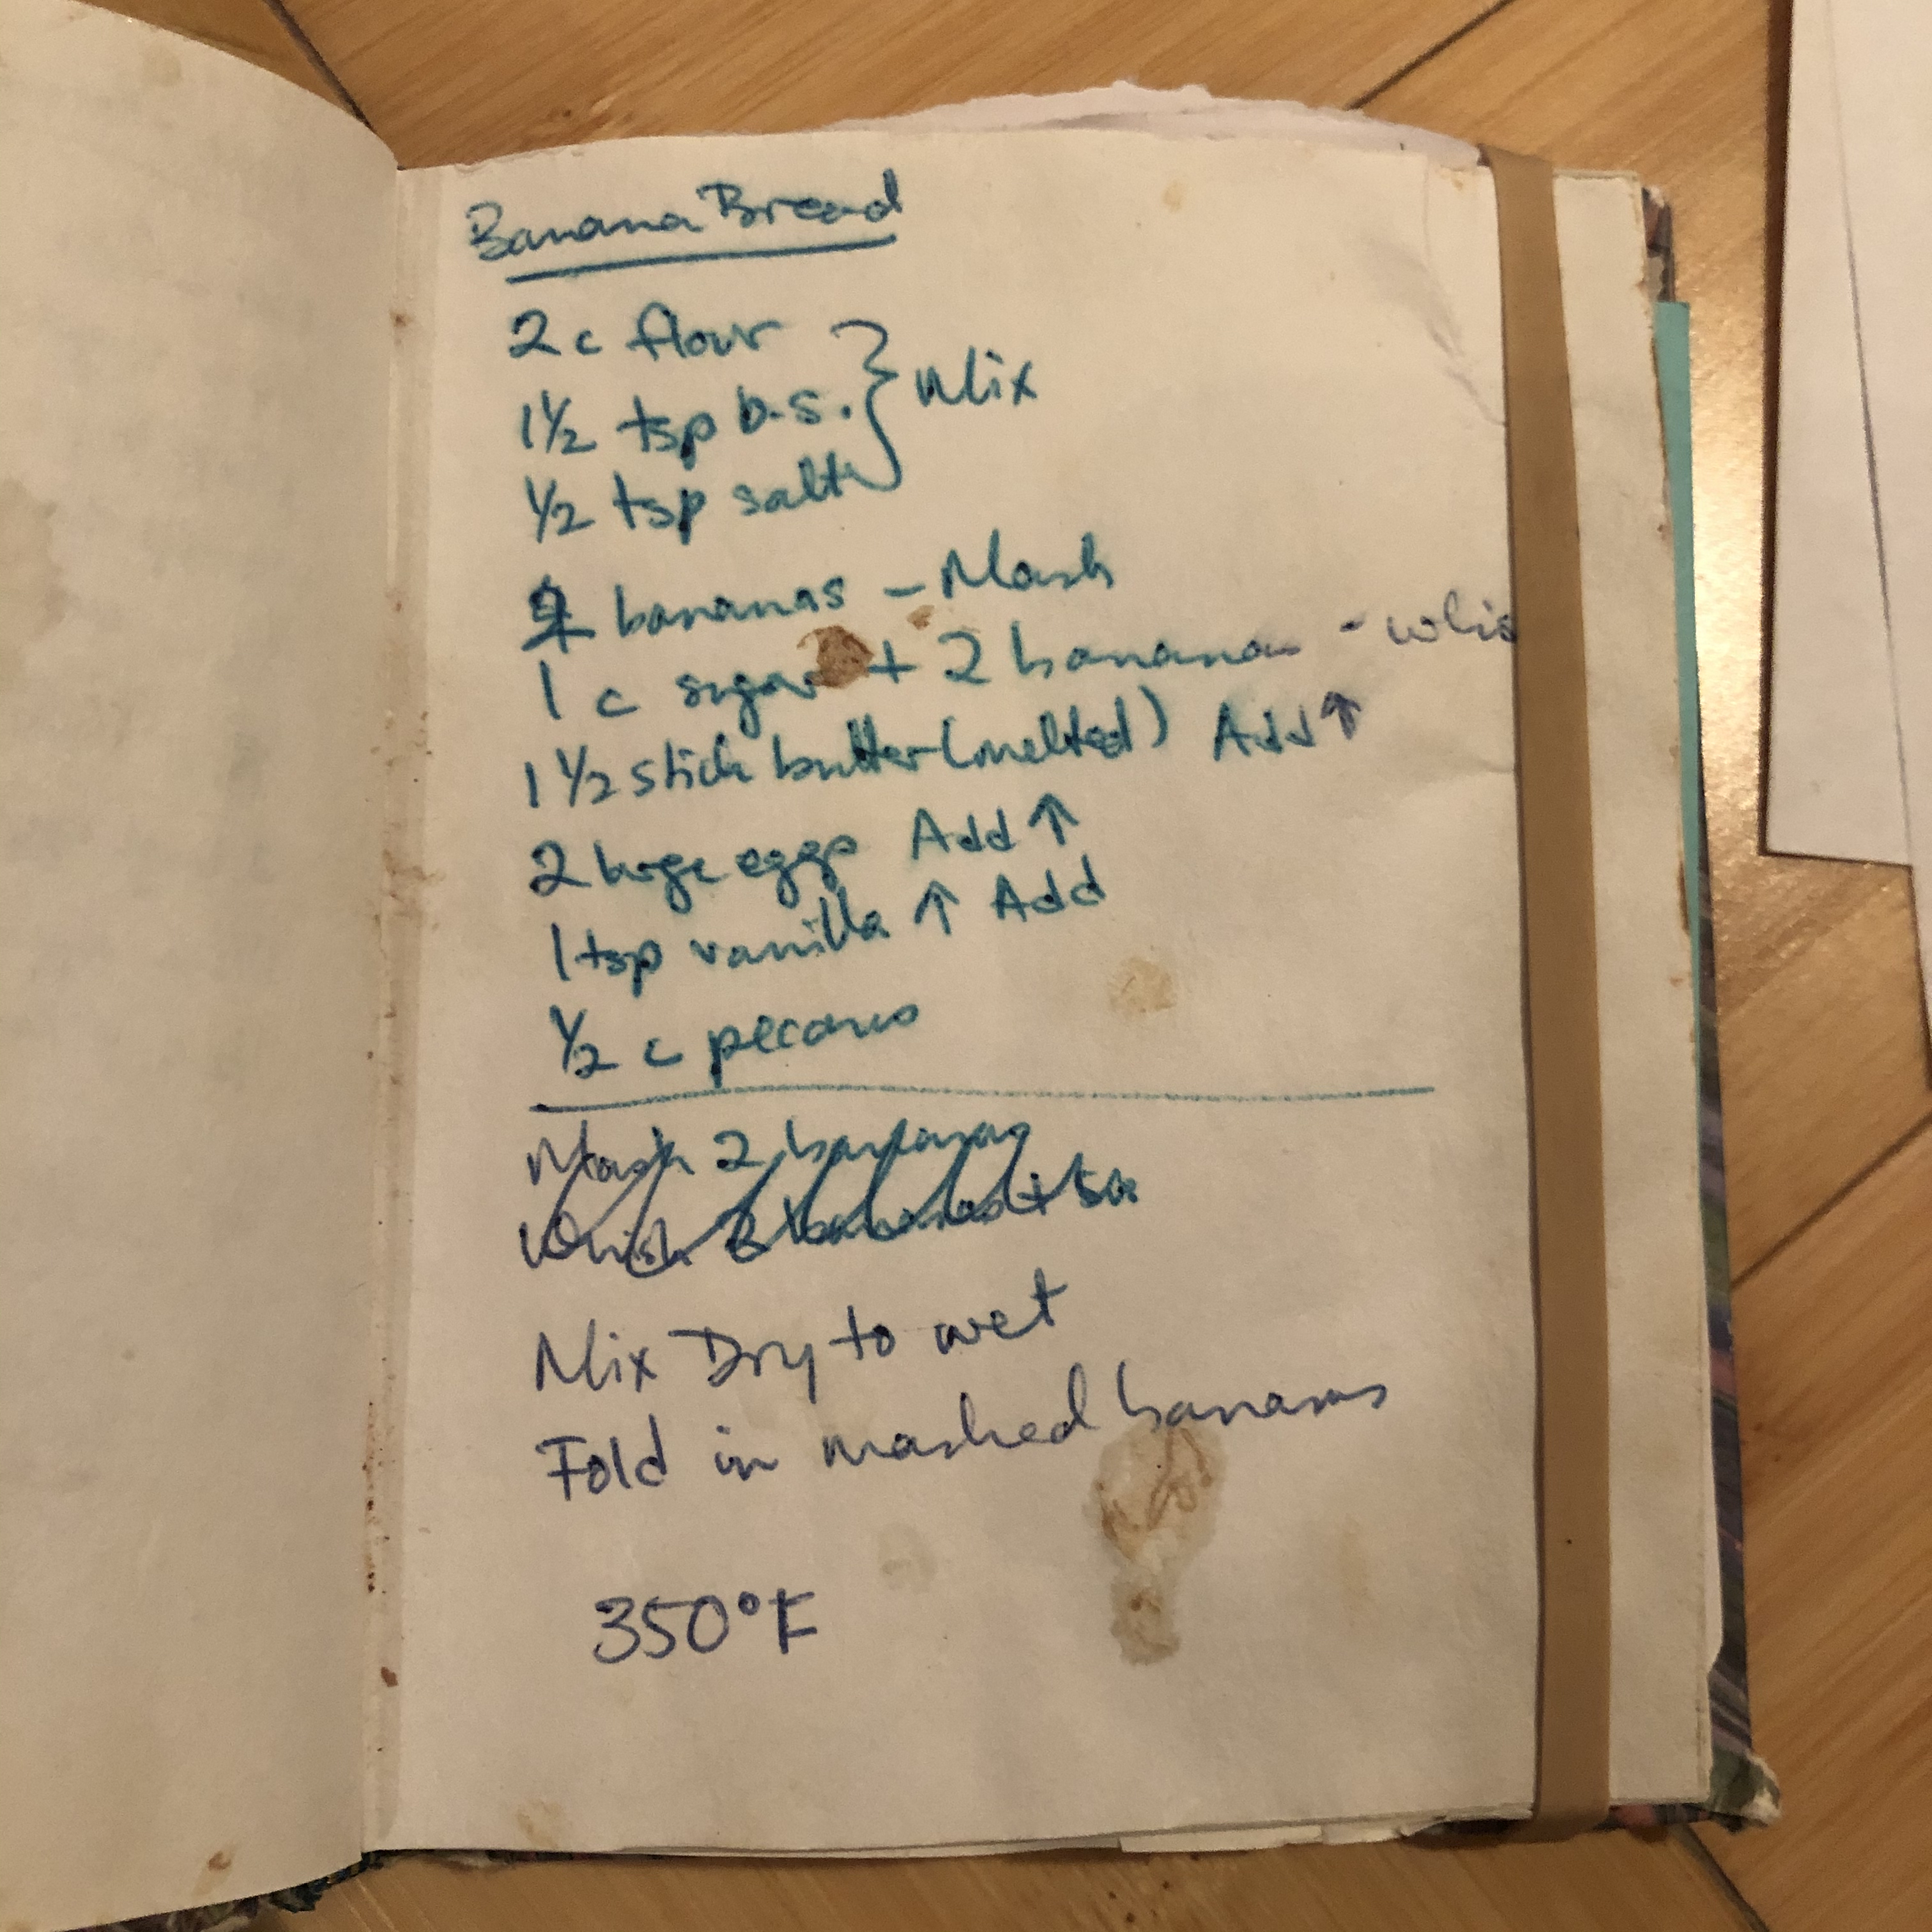 Banana Bread
2 c flour
1 1/2 tsp b.s. } Mix
1/2 tsp salt
bananas - Mash
1 c sugar + 2 bananas - whis
1 1/2 stick butter (melted) Add ↑
2 large eggs Add ↑
1 tsp vanilla ↑ Add
1/2 c pecans
Mash 2 bananas
Whisk 2 bananas +
Mix Dry to wet
Fold in mashed bananas
350°F